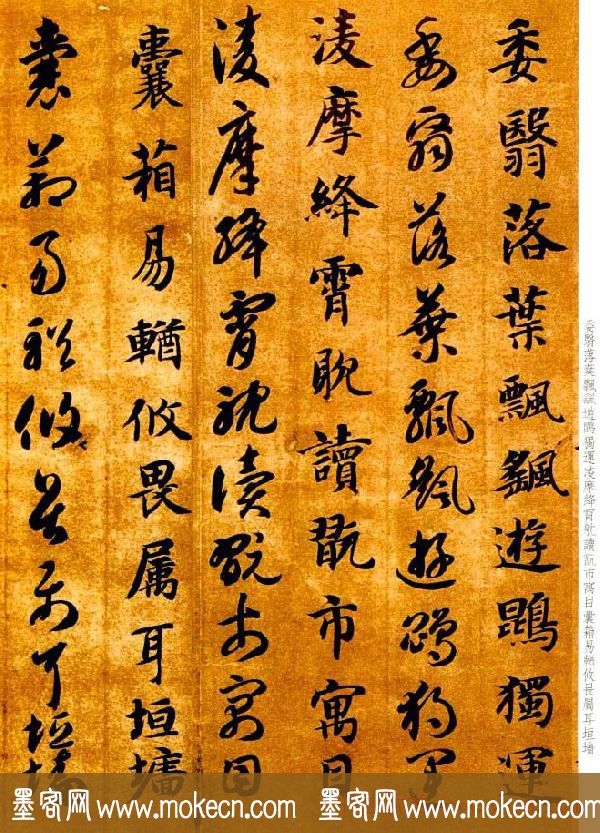 委翳落葉飄颻遊鵾獨運
委翳落葉飄颻遊鵾獨運
淩摩絳霄耽讀翫市寓目
淩摩絳霄耽讀翫市寓目
囊箱易輶攸畏属耳垣墻
囊箱易輶攸畏属耳垣墻
委翳落葉飄颻遊鵾獨運凌摩絳霄耽讀翫市寓目囊箱易輶攸畏屬耳垣墻
墨客网 www.mokecn.com 墨客网 www.mokecn.com